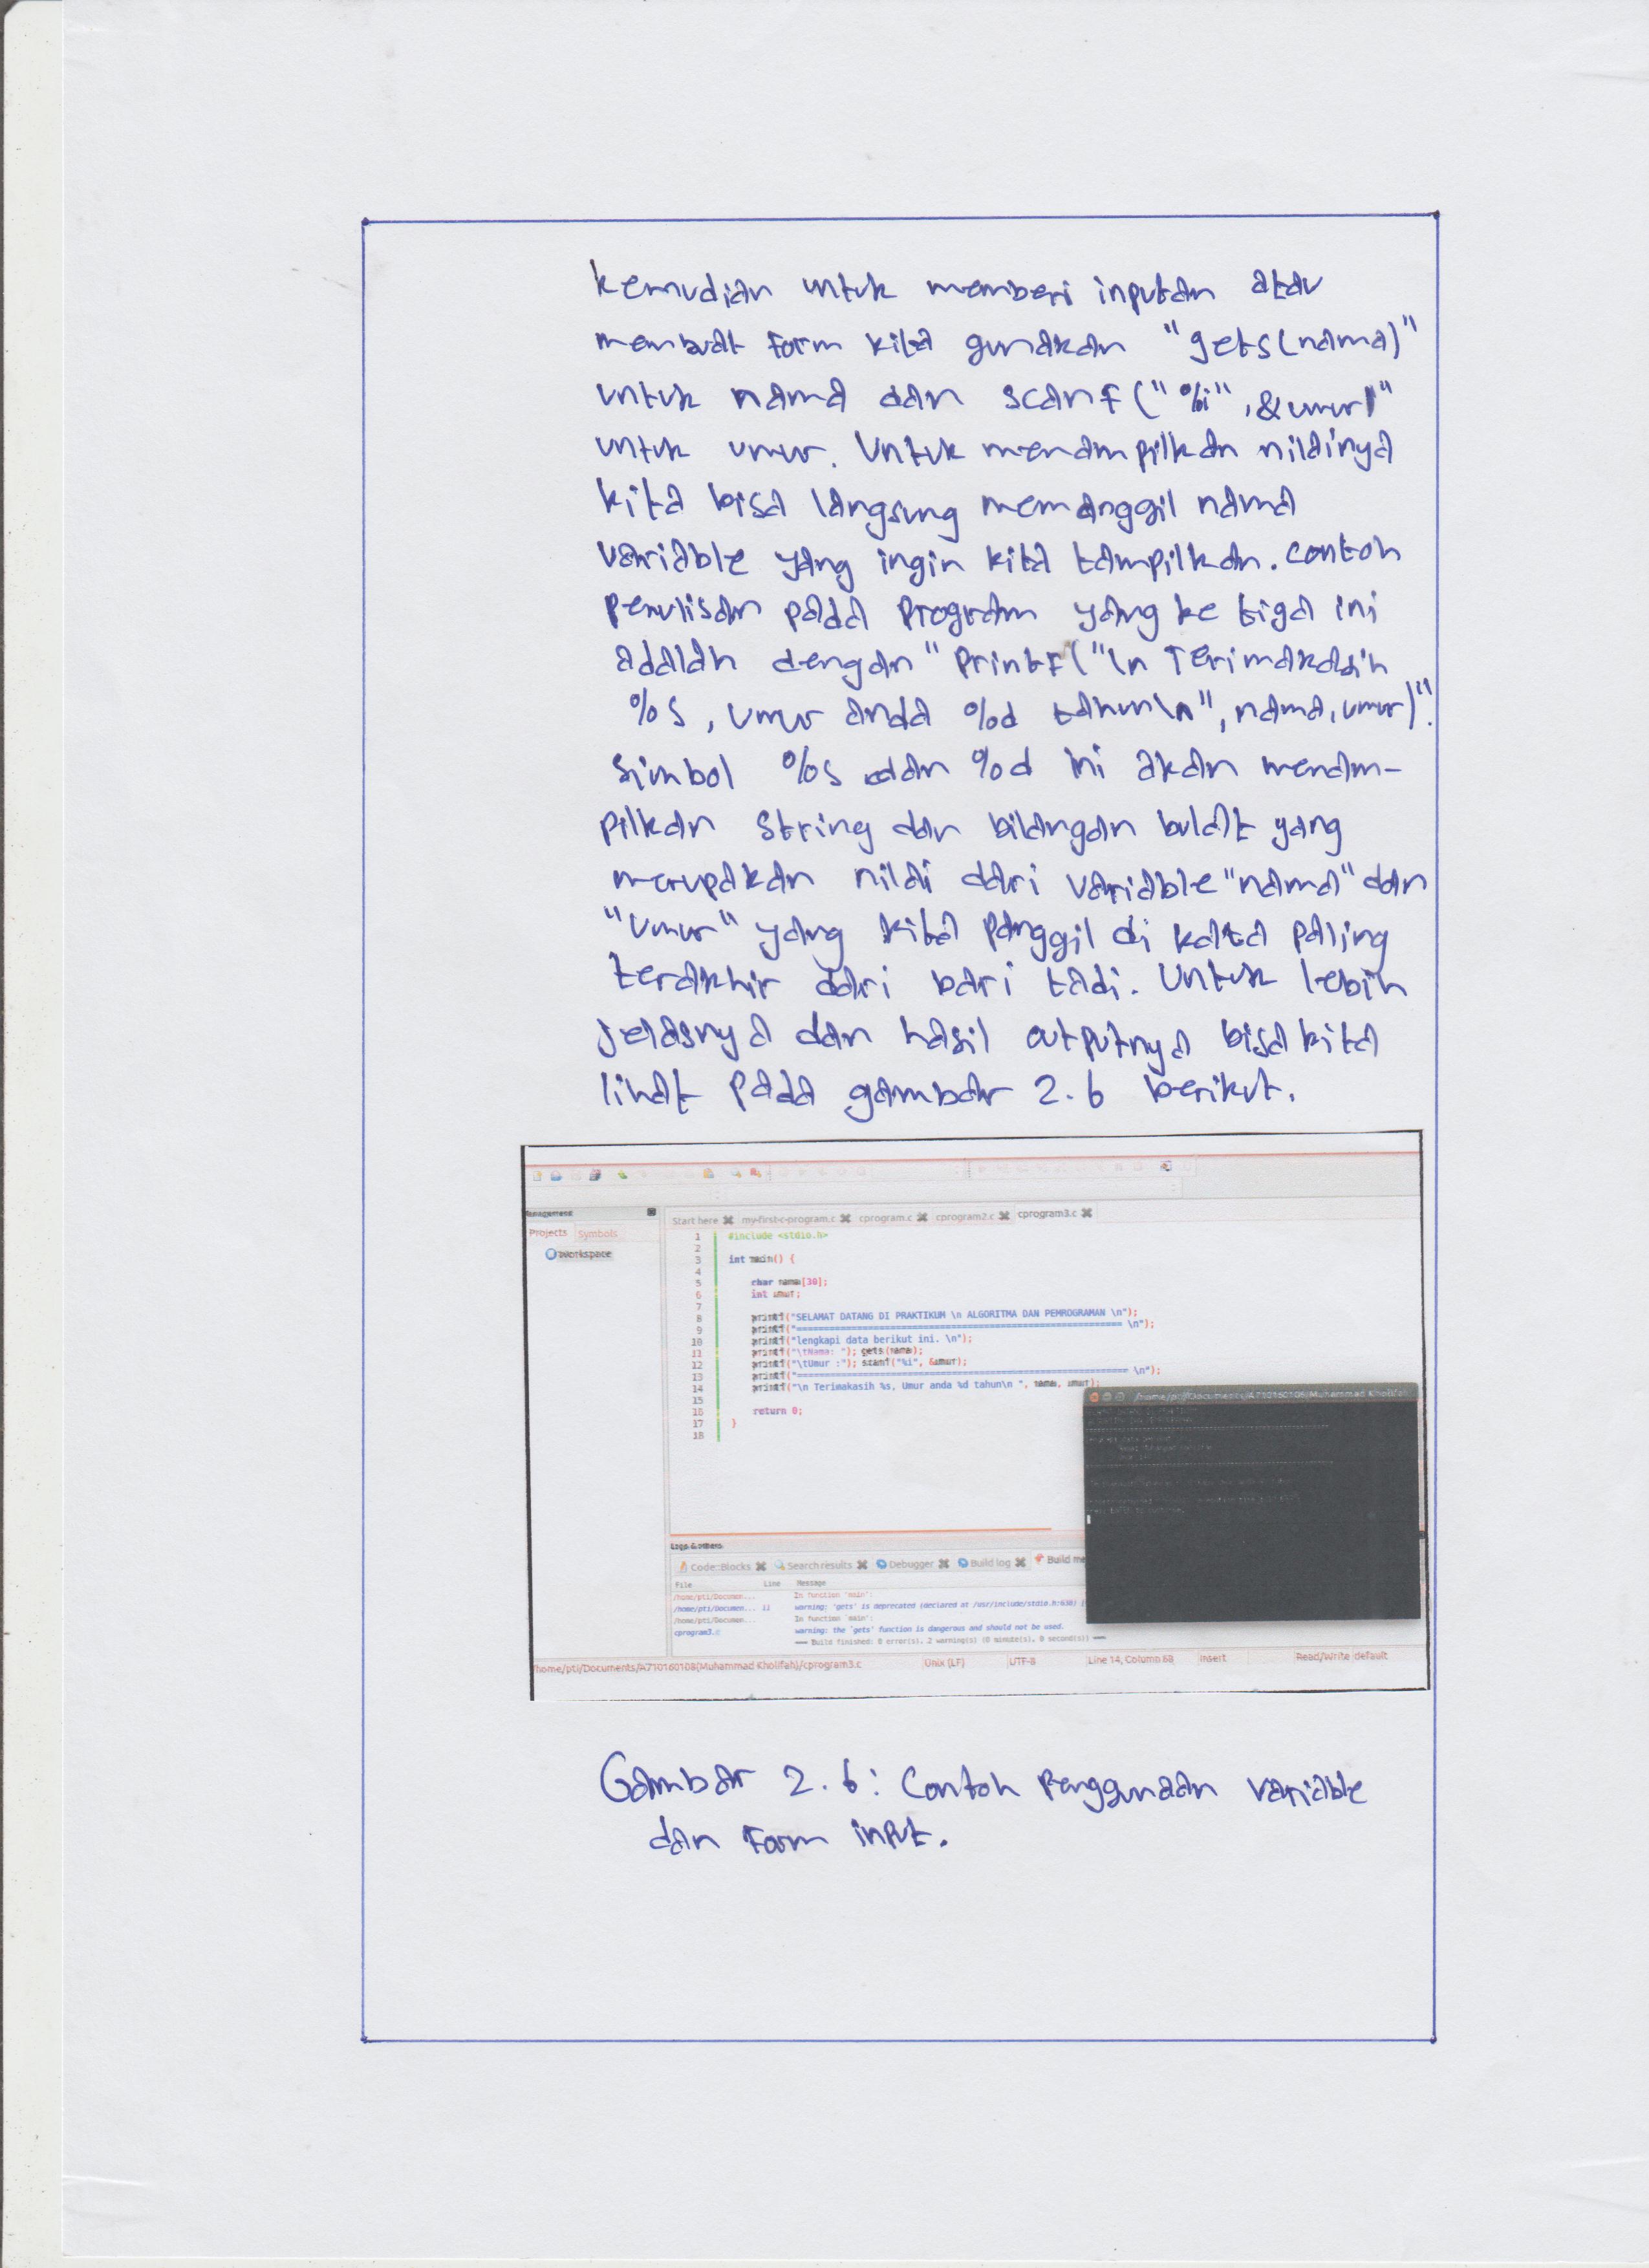 kemudian untuk memberi inputan atau
membuat form kita gunakan "gets(nama)"
untuk nama dan scanf("%i",&umur)"
untuk umur. Untuk menampilkan nilainya
kita bisa langsung memanggil nama
variable yang ingin kita tampilkan. contoh
penulisan pada program yang ke tiga ini
adalah dengan "printf("\n Terimakasih
%s, umur anda %d tahun\n", nama, umur)".
Simbol %s dan %d ini akan menam-
pilkan string dan bilangan bulat yang
merupakan nilai dari variable "nama" dan
"umur" yang kita panggil di kata paling
terakhir dari bari tadi. Untuk lebih
jelasnya dan hasil outputnya bisa kita
lihat pada gambar 2.6 berikut.
Start here my-first-c-program.c cprogram.c cprogram2.c cprogram3.c
Projects Symbols
Workspace
1 #include <stdio.h>
2
3 int main() {
4
5 char nama[30];
6 int umur;
7
8 printf("SELAMAT DATANG DI PRAKTIKUM \n ALGORITMA DAN PEMROGRAMAN \n");
9 printf("============================================================ \n");
10 printf("lengkapi data berikut ini. \n");
11 printf("\tNama: "); gets(nama);
12 printf("\tUmur :"); scanf("%i", &umur);
13 printf("============================================================ \n");
14 printf("\n Terimakasih %s, Umur anda %d tahun\n ", nama, umur);
15
16 return 0;
17 }
18
/home/pti/Documents/A710160108(Muhammad Kholifah)
Logs & others
Code::Blocks Search results Debugger Build log Build me
File Line Message
/home/pti/Documen... In function 'main':
/home/pti/Documen... 11 warning: 'gets' is deprecated (declared at /usr/include/stdio.h:638) [
/home/pti/Documen... In function `main':
cprogram3.c warning: the `gets' function is dangerous and should not be used.
=== Build finished: 0 error(s), 2 warning(s) (0 minute(s), 0 second(s)) ===
/home/pti/Documents/A710160108(Muhammad Kholifah)/cprogram3.c Unix (LF) UTF-8 Line 14, Column 68 Insert Read/Write default
Gambar 2.6: Contoh Penggunaan variable
dan Form input.